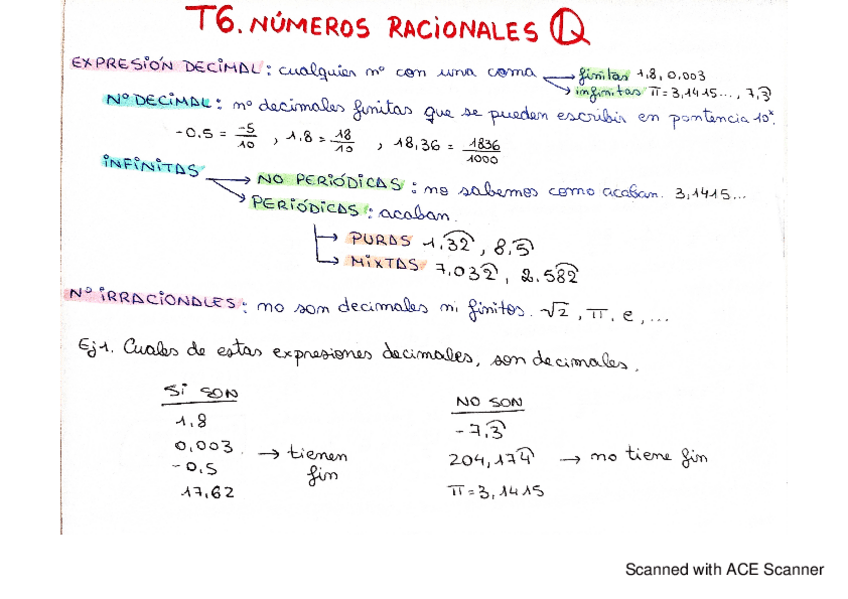 T6. NÚMEROS RACIONALES Q
EXPRESIÓN DECIMAL: cualquier nº con una coma → finitas 1,8, 0,003
→ infinitas π=3,1415..., 7,3̂
Nº DECIMAL: nº decimales finitas que se pueden escribir en pontencia 10ˣ.
-0,5 = -5/10 , 1,8 = 18/10 , 18,36 = 1836/1000
INFINITAS
→ NO PERIÓDICAS: no sabemos como acaban. 3,1415...
→ PERIÓDICAS: acaban.
→ PURAS 1,3͡2 , 8,5̂
→ MIXTAS 7,03͡2 , 2.5͡82
Nº IRRACIONALES: no son decimales ni finitos. √2 , π, e, ...
Ej1. Cuales de estas expresiones decimales, son decimales,
SI SON
1,8
0,003 → tienen
-0,5 fin
17,62
NO SON
-7,3̂
204,17͡4 → no tiene fin
π=3,1415
Scanned with ACE Scanner